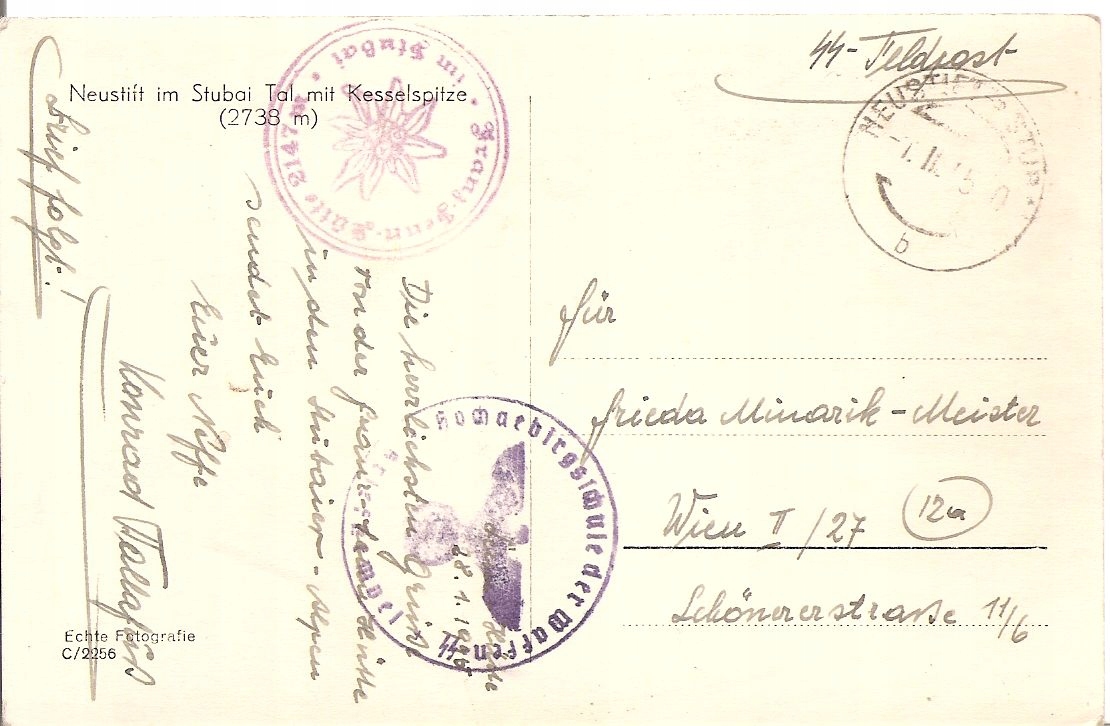 SS-Feldpost
Neustift im Stubai Tal mit Kesselspitze
(2738 m)
Franz Senn-Hütte 2147 m
im Stubai
NEUSTIFT STUB.
b
Hütte
28.1.194
Die herrlichsten Grüße
von der Franz Senn Hütte
in den Stubaier-Alpen
sendet Euch
Euer Neffe
Konrad
Brief folgt!
Hochgebirgsschule der Waffen SS
Für
Frieda Minarik-Meister
Wien II/27
12a
Schönererstraße 11/6
Echte Fotografie
C/2256